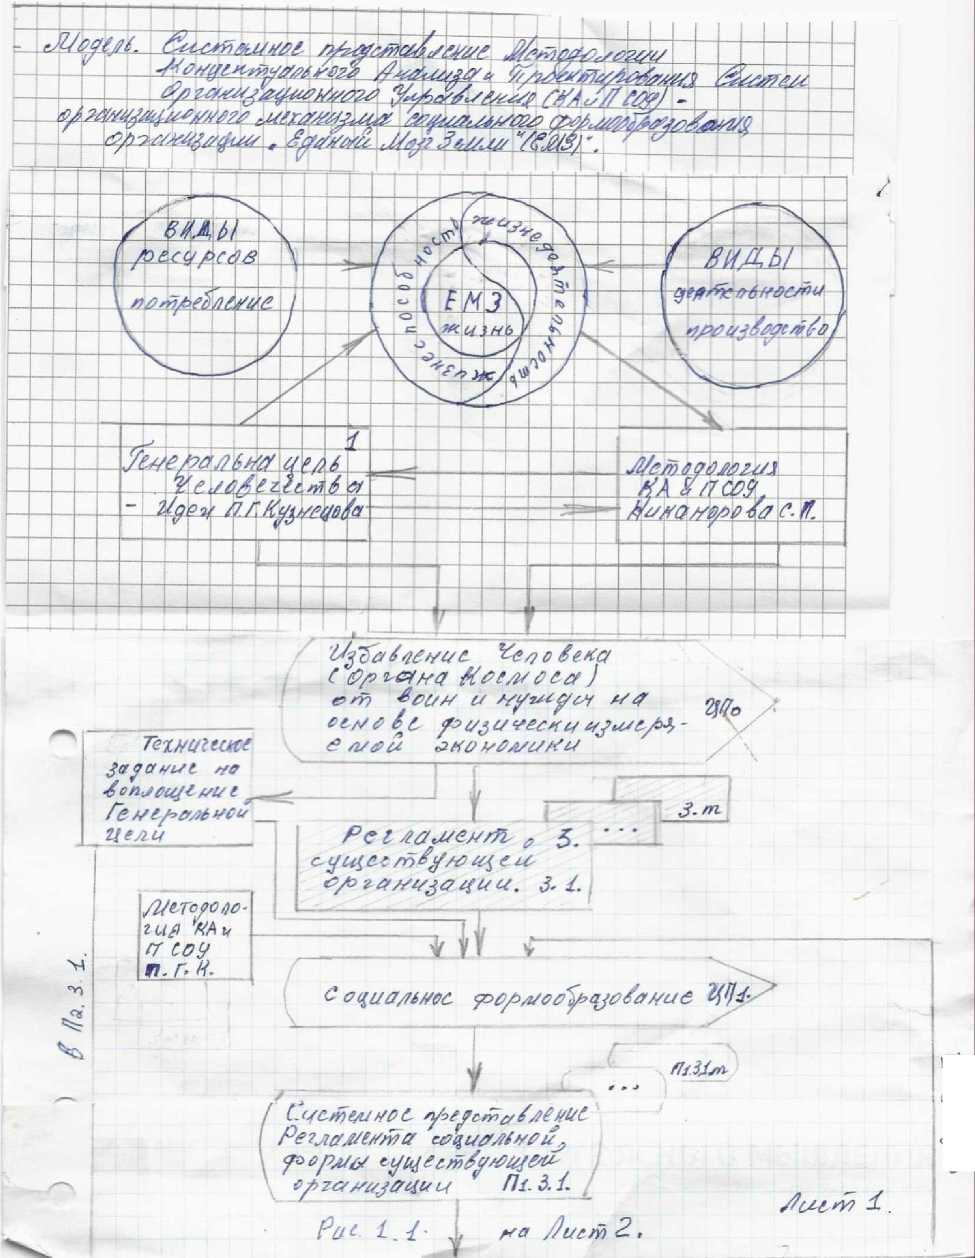 Модель. Системное представление Методологии
Концептуального Анализа и Проектирования Систем
Организационного Управления (КА и П СОУ) -
организационного механизма социального формообразования
организации „Единый Мозг Земли" (ЕМЗ)".
ВИДЫ
ресурсов
потребление
жизнедеятельность
жизнеспособность
ЕМЗ
жизнь
ВИДЫ
деятельности
производство
1
Генеральна цель
Человечества
- Идея П.Г. Кузнецова
Методология
КА и П СОУ
Никанорова С.П.
Избавление Человека
(Органа Космоса)
от войн и нужды на
основе физически измеря-
емой экономики
ЦП0
Техническое
задание на
воплощение
Генеральной
цели
3.m
...
Регламент 3.
существующей
организации. 3.1.
Методоло-
гия КА и
П СОУ
П.Г.К.
Социальное формообразование ЦП1.
В П2.3.1.
П1.3.1.m
...
Системное представление
Регламента социальной
формы существующей
организации П1.3.1.
Лист 1.
Рис. 1.1. на Лист 2.